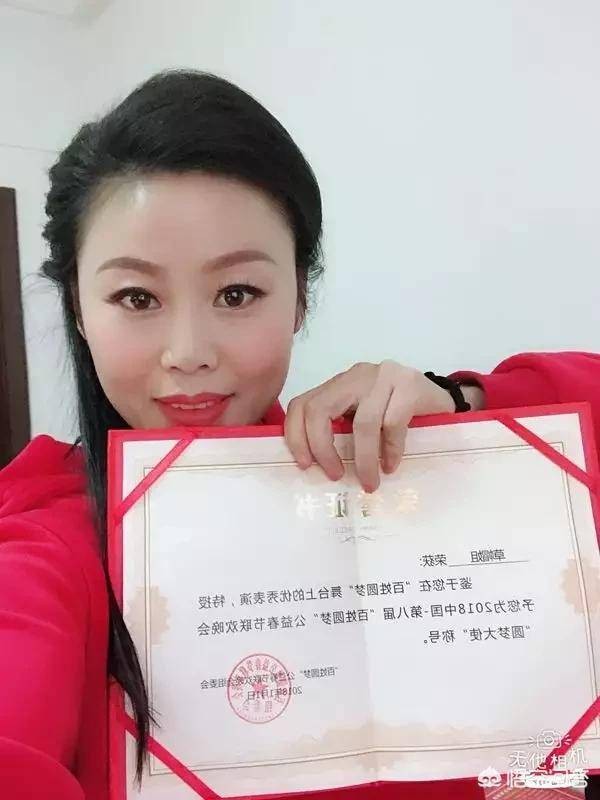 荣誉证书
草帽姐 荣获：
鉴于您在“百姓圆梦”舞台上的优秀表演，特授
予您为2018中国-第八届“百姓圆梦”公益春节联欢晚会
“圆梦大使”称号。
“百姓圆梦”公益春节联欢晚会组委会
2018年1月1日
无他相机
悟空问答